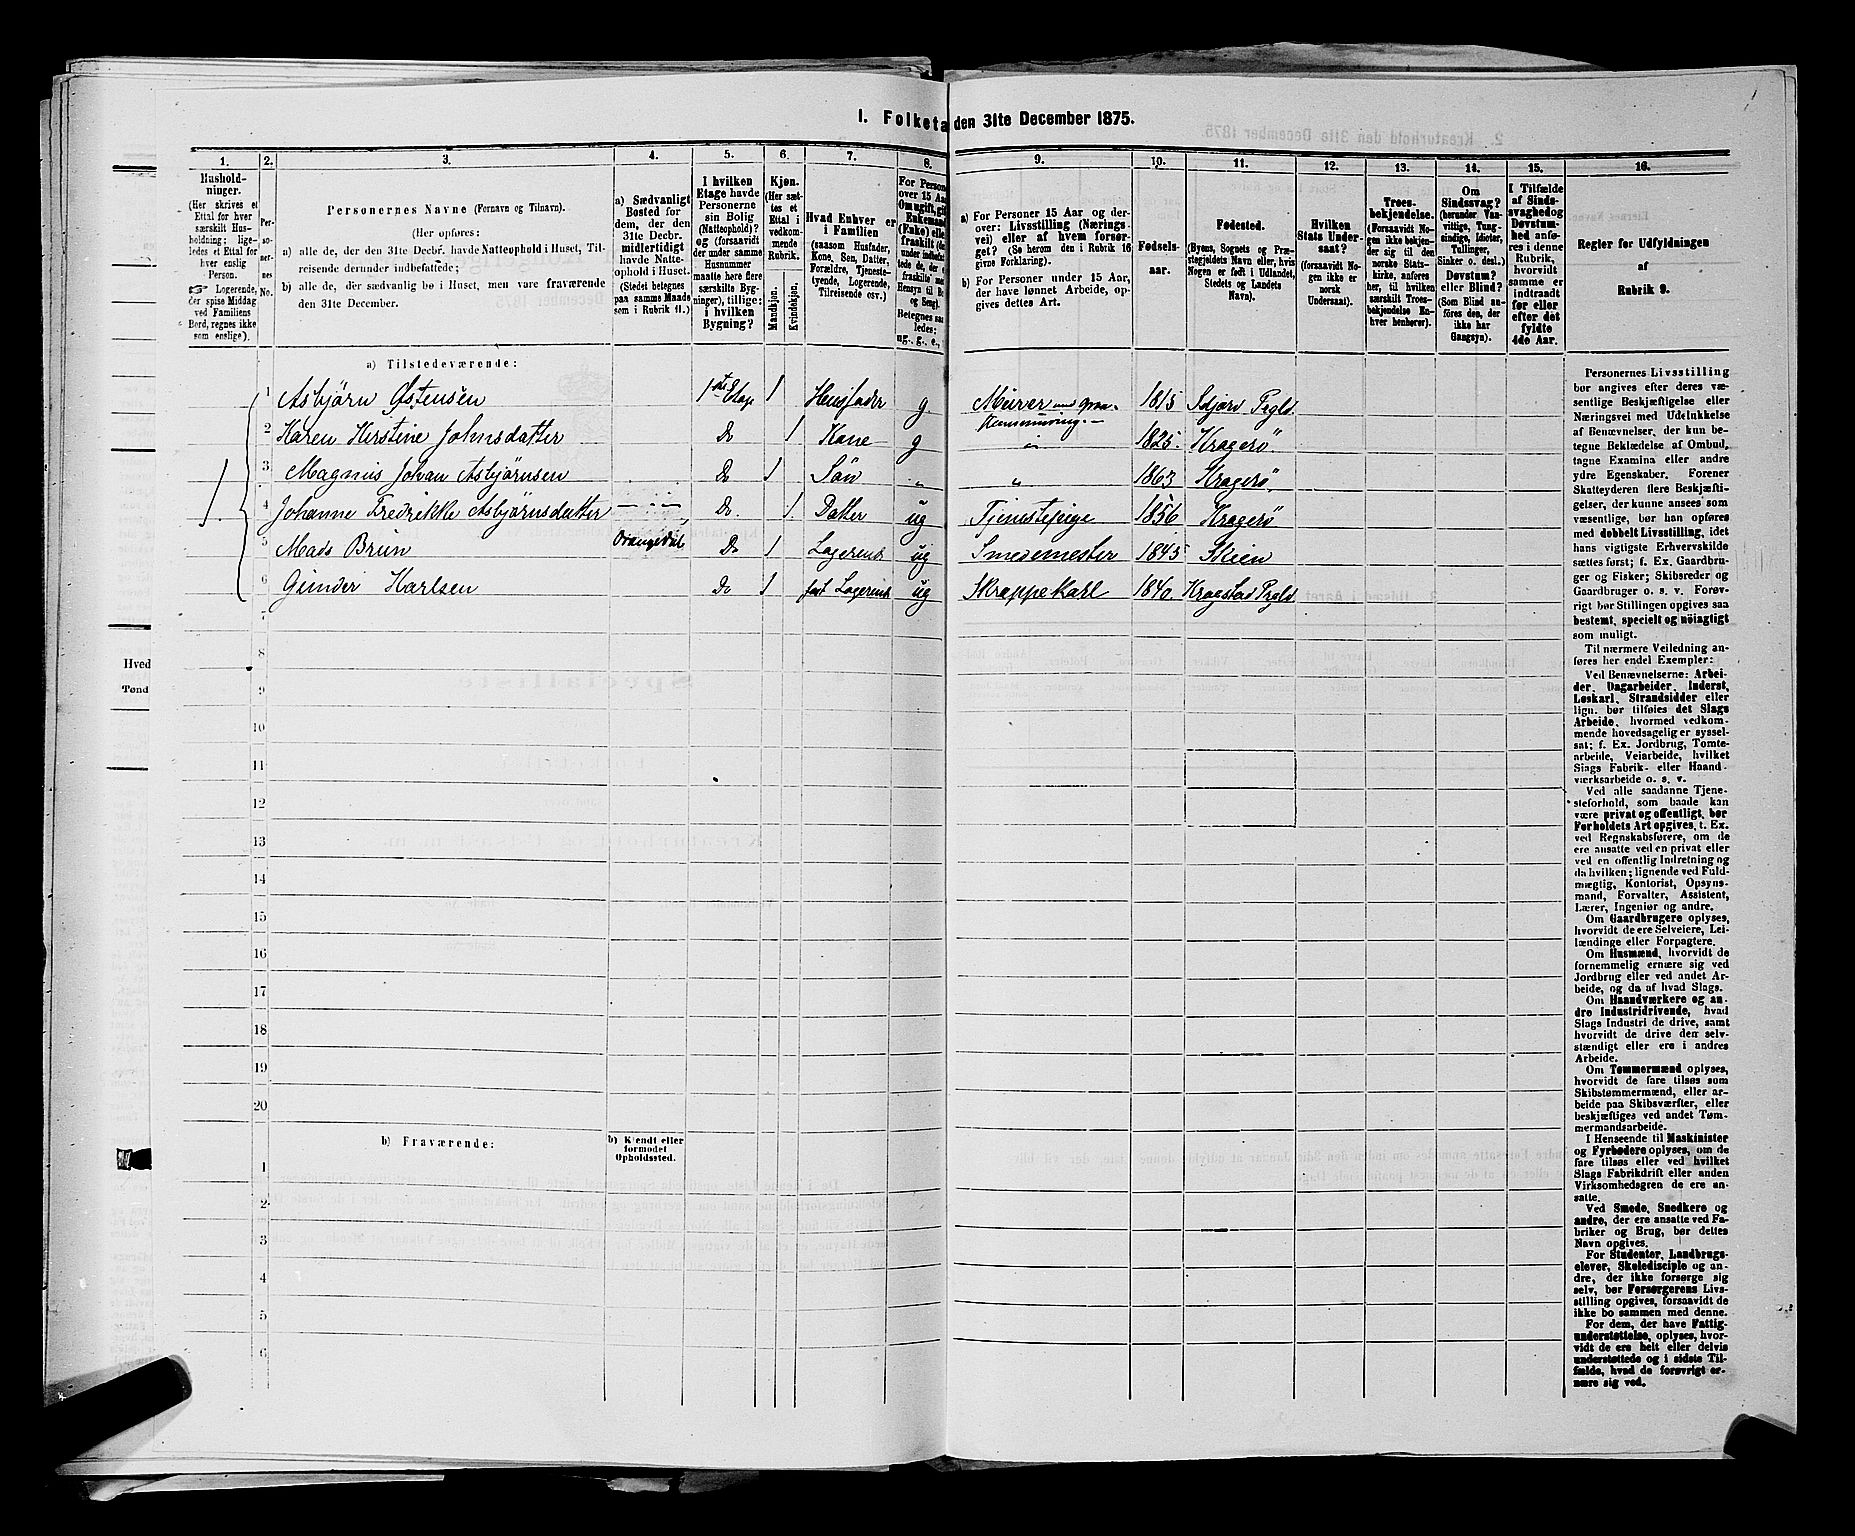 1. Folketa den 31te December 1875.
1. 2. 3. 4. 5. 6. 7. 8. 9. 10. 11. 12. 13. 14. 15. 16.
Hushold-
ninger.
(Her skrives et
Ettal for hver
særskilt Hus-
holdning; lige-
ledes et Ettal for
hver enslig
Person.
☞ Logerende,
der spise Middag
ved Familiens
Bord, regnes ikke
som enslige).
Per-
so-
ner-
nes
No.
Personernes Navne (Fornavn og Tilnavn).
(Her opføres:
a) alle de, der den 31te Decbr. havde Natteophold i Huset, Til-
reisende derunder indbefattede;
b) alle de, der sædvanlig bo i Huset, men vare fraværende
den 31te December.
a) Sædvanligt
Bosted for
dem, der den
31te Decbr.
midlertidigt
havde Natte-
ophold i Huset.
(Stedet betegnes
paa samme Maade
som i Rubrik 11.)
I hvilken
Etage havde
Personerne
sin Bolig
(Natteophold)?
og (forsaavidt
der under samme
Husnummer
maatte here flere
særskilte Byg-
ninger), tillige:
i hvilken
Bygning?
Kjøn.
(Her sæt-
tes et
Ettal i
vedkom-
mende
Rubrik.
Mandkjøn.
Kvindekjøn.
Hvad Enhver er
i Familien
(saasom Husfader,
Kone, Søn, Datter,
Forældre, Tjeneste-
tyende, Logerende,
Tilreisende osv.)
For Persone
over 15 Aar
Om ugift, gif
Enkemand
(Enke) elle
fraskilt (de
ledes:
ug., g., e.,
a) For Personer 15 Aar og der-
over: Livsstilling (Nærings-
vei) eller af hvem forsør-
get? (Se herom den i Rubrik 16
givne Forklaring).
b) For Personer under 15 Aar,
der have lønnet Arbeide, op-
gives dettes Art.
Fødsels-
aar.
Fødested.
(Byens, Sognets og Præ-
stegjeldets Navn eller, hvis
Nogen er født i Udlandet,
Stedets og Landets
Navn).
Hvilken
Stats Under-
saat?
(forsaavidt No-
gen ikke er
norsk
Undersaat).
Troes-
bekjendelse.
(Forsaavidt No-
gen ikke bekjen-
der sig til den
norske Stats-
kirke, anføres
her, til hvilken
særskilt Troes-
bekjendelse En-
hver henhører).
Om
Sindssvag?
(herunder Van-
vittige, Tung-
sindige, Idioter,
Tullinger,
Sinker o. desl.).
Døvstum?
eller Blind?
(Som Blind an-
føres den, der
ikke har
Gangsyn).
I Tilfælde
af Sinds-
svaghed og
Døvstum-
hed anføres
i denne
Rubrik,
hvorvidt
samme er
indtraadt
før eller
efter det
fyldte
4de Aar.
Regler for Udfyldningen
af
Rubrik 9.
a) Tilstedeværende:
1 Asbjörn Östensen 1ste Etage 1 Husfader g Murer 1815
2 Karen Kirstine Johnsdatter Do 1 Kone g " 1825. Kragerö
3 Magnus Johan Asbjörnsen Do 1 Sön " " 1863 Kragerö
4 Johanne Fredrikke Asbjörnsdatter Do. 1 Datter ug Tjenestepige 1856 Kragerö
5 Mads Brun Drangedal Do 1 Logerende ug Smedemester 1845 Skien
6 Gunder Karlsen Do 1 fast Logerende ug Skrappekarl 1840 Pgld
7
8
9
10
11
12
13
14
15
16
17
18
19
20
b) Fraværende:
b) Kjendt eller
formodet
Opholdssted.
1
2
3
4
5
6
Personernes Livsstilling
bør angives efter deres væ-
sentlige Beskjæftigelse eller
Næringsvei med Udelukkelse
af Benævnelser, der kun be-
tegne Beklædelse af Ombud,
tagne Examina eller andre
ydre Egenskaber. Forener
Skatteyderen flere Beskjæfti-
gelser, der kunne ansees som
væsentlige, bør han opføres
med dobbelt Livsstilling, idet
hans vigtigste Erhvervskilde
sættes først; f. Ex. Gaardbru-
ger og Fisker; Skibsreder og
Gaardbruger o. s. v. Forøv-
rigt bør Stillingen opgives saa
bestemt, specielt og nøiagtigt
som muligt.
Til nærmere Veiledning an-
føres her endel Exempler:
Ved Benævnelserne: Arbei-
der, Dagarbeider, Inderst,
Løskarl, Strandsidder eller
lign. bør tilføies det Slags
Arbeide, hvormed vedkom-
mende hovedsagelig er syssel-
sat; f. Ex. Jordbrug, Tomte-
arbeide, Veiarbeide, hvilket
Slags Fabrik- eller Haand-
værksarbeide o. s. v.
Ved alle saadanne Tjene-
steforhold, som baade kan
være privat og offentligt, bør
Forholdets Art opgives, t. Ex.
ved Regnskabsførere, om de
ere ansatte ved en privat eller
ved en offentlig Indretning og
da hvilken; lignende ved Fuld-
mægtig, Kontorist, Opsyns-
mand, Forvalter, Assistent,
Lærer, Ingeniør og andre.
Om Gaardbrugere oplyses,
hvorvidt de ere Selveiere, Lei-
lændinge eller Forpagtere.
Om Husmænd, hvorvidt de
fornemmelig ernære sig ved
Jordbrug eller ved andet Ar-
beide, og da af hvad Slags.
Om Haandværkere og an-
dre Industridrivende, hvad
Slags Industri de drive, samt
hvorvidt de drive den selv-
stændigt eller ere i andres
Arbeide.
Om Tømmermænd oplyses,
hvorvidt de fare tilsøs som
Skibstømmermænd, eller ar-
beide paa Skibsværfter, eller
beskjæftiges ved andet Tøm-
mermandsarbeide.
I Henseende til Maskinister
og Fyrbødere oplyses, om de
fare tilsøs eller ved hvilket
Slags Fabrikdrift eller anden
Virksomhedsgren de ere an-
satte.
Ved Smede, Snedkere og
andre, der ere ansatte ved Fa-
briker og Brug, bør dettes
Navn opgives.
For Studenter, Landbrugs-
elever, Skoledisciple og an-
dre, der ikke forsørge sig
selv, bør Forsørgerens Livs-
stilling opgives, forsaavidt de
ikke bo sammen med denne.
For dem, der have Fattig-
understøttelse, oplyses, hvor-
vidt de ere helt eller delvis
understøttede og i sidste Til-
fælde, hvad de forøvrigt er-
nære sig ved.
Hved
Tønd